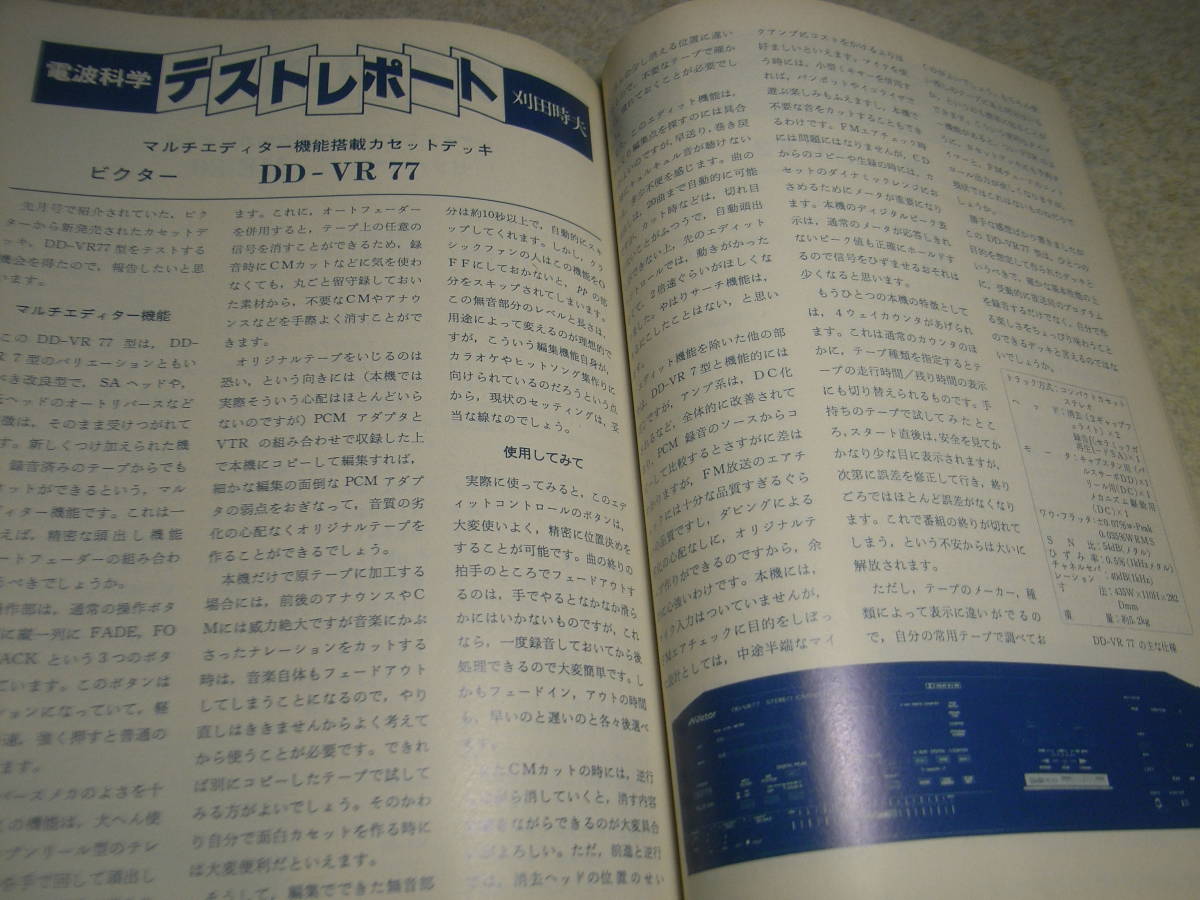 電波科学
テストレポート
刈田時夫
マルチエディター機能搭載カセットデッキ
ビクター DD-VR 77
先月号で紹介されていた，ビク
ターから新発売されたカセットデ
ッキ，DD-VR77型をテストする
機会を得たので，報告したいと思
います。
マルチエディター機能
この DD-VR 77 型は，DD-
R 7 型のバリエーションともい
べき改良型で，SAヘッドや，
ヘッドのオートリバースなど
徴は，そのまま受けつがれて
す。新しくつけ加えられた機
録音済みのテープからでも
ットができるという，マル
ィター機能です。これは一
えば，精密な頭出し機能
ートフェーダーの組み合わ
うべきでしょうか。
操作部は，通常の操作ボタ
に縦一列に FADE, FO
ACK という3つのボタ
ています。このボタンは
ションになっていて，軽
速，強く押すと普通の
ます。
バースメカのよさを十
この機能は，大へん便
プンリール型のテレ
を手で回して頭出し
ます。これに，オートフェーダー
を併用すると，テープ上の任意の
信号を消すことができるため，録
音時にCMカットなどに気を使わ
なくても，丸ごと留守録しておい
た素材から，不要なCMやアナウ
ンスなどを手際よく消すことがで
きます。
オリジナルテープをいじるのは
恐い，という向きには（本機では
実際そういう心配はほとんどいら
ないのですが）PCM アダプタと
VTR の組み合わせで収録した上
で本機にコピーして編集すれば，
細かな編集の面倒な PCM アダプ
タの弱点をおぎなって，音質の劣
化の心配なくオリジナルテープを
作ることができるでしょう。
本機だけで原テープに加工する
場合には，前後のアナウンスやC
Mには威力絶大ですが音楽にかぶ
さったナレーションをカットする
時は，音楽自体もフェードアウト
してしまうことになるので，やり
直しはききませんからよく考えて
から使うことが必要です。できれ
ば別にコピーしたテープで試して
みる方がよいでしょう。そのかわ
り自分で面白カセットを作る時に
は大変便利だといえます。
そうして，編集でできた無音部
分は約10秒以上で，自動的にスキ
ップしてくれます。しかし，クラ
シックファンの人はこの機能をO
FFにしておかないと，pp の部
分をスキップされてしまいます。
この無音部分のレベルと長さは，
用途によって変えるのが理想的で
すが，こういう編集機能自身が，
カラオケやヒットソング集作りに
向けられているのだろうという点
から，現状のセッティングは，妥
当な線なのでしょう。
使用してみて
実際に使ってみると，このエデ
ィットコントロールのボタンは，
大変使いよく，精密に位置決めを
することが可能です。曲の終りの
拍手のところでフェードアウトす
るのは，手でやるとなかなか滑ら
かにはいかないものですが，これ
なら，一度録音しておいてから後
処理できるので大変簡単です。し
かもフェードイン，アウトの時間
も，早いのと遅いのと各々後選べ
ます。
たCMカットの時には，逆行
ながら消していくと，消す内容
ながらできるのが大変具合
がよろしい。ただ，前進と逆行
では，消去ヘッドの位置のせい
少し消える位置に違い
で，不要なテープで確か
慣れておくことが必要でし
このエディット機能は，
編集点を探すのには具合
いのですが，早送り，巻き戻
キュルキュル音が聴けない
多少不便を感じます。曲の
は，20曲まで自動的に可能
が，カット時などは，切れ目
ことがふつうで，自動頭出
できない上，先のエディット
ロールでは，動きがかった
て，2倍速ぐらいがほしくな
ました。やはりサーチ機能は，
にこしたことはない，と思い
ディット機能を除いた他の部
DD-VR 7型と機能的には
ですが，アンプ系は，DC化
れるなど，全体的に改善されて
り，PCM 録音のソースからコ
して比較するとさすがに差は
りますが，FM放送のエアチ
クには十分な品質すぎるぐら
品質ですし，ダビングによる
の心配なしに，オリジナルテ
作りができるのですから，余
心強いわけです。本機には，
イク入力はついていませんが，
FMエアチェックに目的をしぼっ
設計としては，中途半端なマイ
クアンプにコストをかけるよりは
好ましいといえます。マイクを使
う時には，小型ミキサーを併用す
れば，パンポットやイコライザで
遊ぶ楽しみもふえますし，本機で
不要な音をカットすることもでき
るわけです。FMエアチェック時
には問題にはなりませんが，CD
からのコピーや生録の時には，カ
セットのダイナミックレンジにお
さめるためにメータが重要になり
ます。本機のディジタルピーク表
示は，通常のメータが応答しきれ
ないピーク値も正確にホールドす
るので信号をひずませるおそれは
少なくなると思います。
もうひとつの本機の特徴として
は，4ウェイカウンタがあげられ
ます。これは通常のカウンタのほ
かに，テープ種類を指定するとテ
ープの走行時間／残り時間の表示
にも切り替えられるものです。手
持ちのテープで試してみたとこ
ろ，スタート直後は，安全を見てか
かなり少な目に表示されますが，
次第に誤差を修正して行き，終り
ごろではほとんど誤差がなくなり
ます。これで番組の終りが切れて
しまう，という不安からは大いに
解放されます。
ただし，テープのメーカー，種
類によって表示に違いがでるの
で，自分の常用テープで調べてお
しょうか。
勝手な感想ばかり書きましたが
この DD-VR77 型は，ひとつの
目的を想定して作られたデッキと
いうべきで，確かな基本性能の上
に，受動的に放送のプログラム
を録音するだけでなく，自分で作
る楽しさをちょっぴり味わうこと
のできるデッキと言えるのではな
いでしょうか。
トラック方式：コンパクトカセット
ステレオ
ヘッド：消去（2ギャップフ
ェライト）×2
モータ：キャプスタン用（パ
ルスサーボDD）×1
リール用(DC)×1
メカニズム駆動用
(DC)×1
ワウ・フラッタ：±0.07%w·Peak
0.035%WRMS
SN比：54dB(メタル)
ひずみ率：0.5%(1kHzメタル)
チャンネルセパ
レーション：40dB(1kHz)
寸法：435W×110H×282
Dmm
重量：約5.2kg
DD-VR 77の主な仕様
Victor
DD-VR77 STEREO